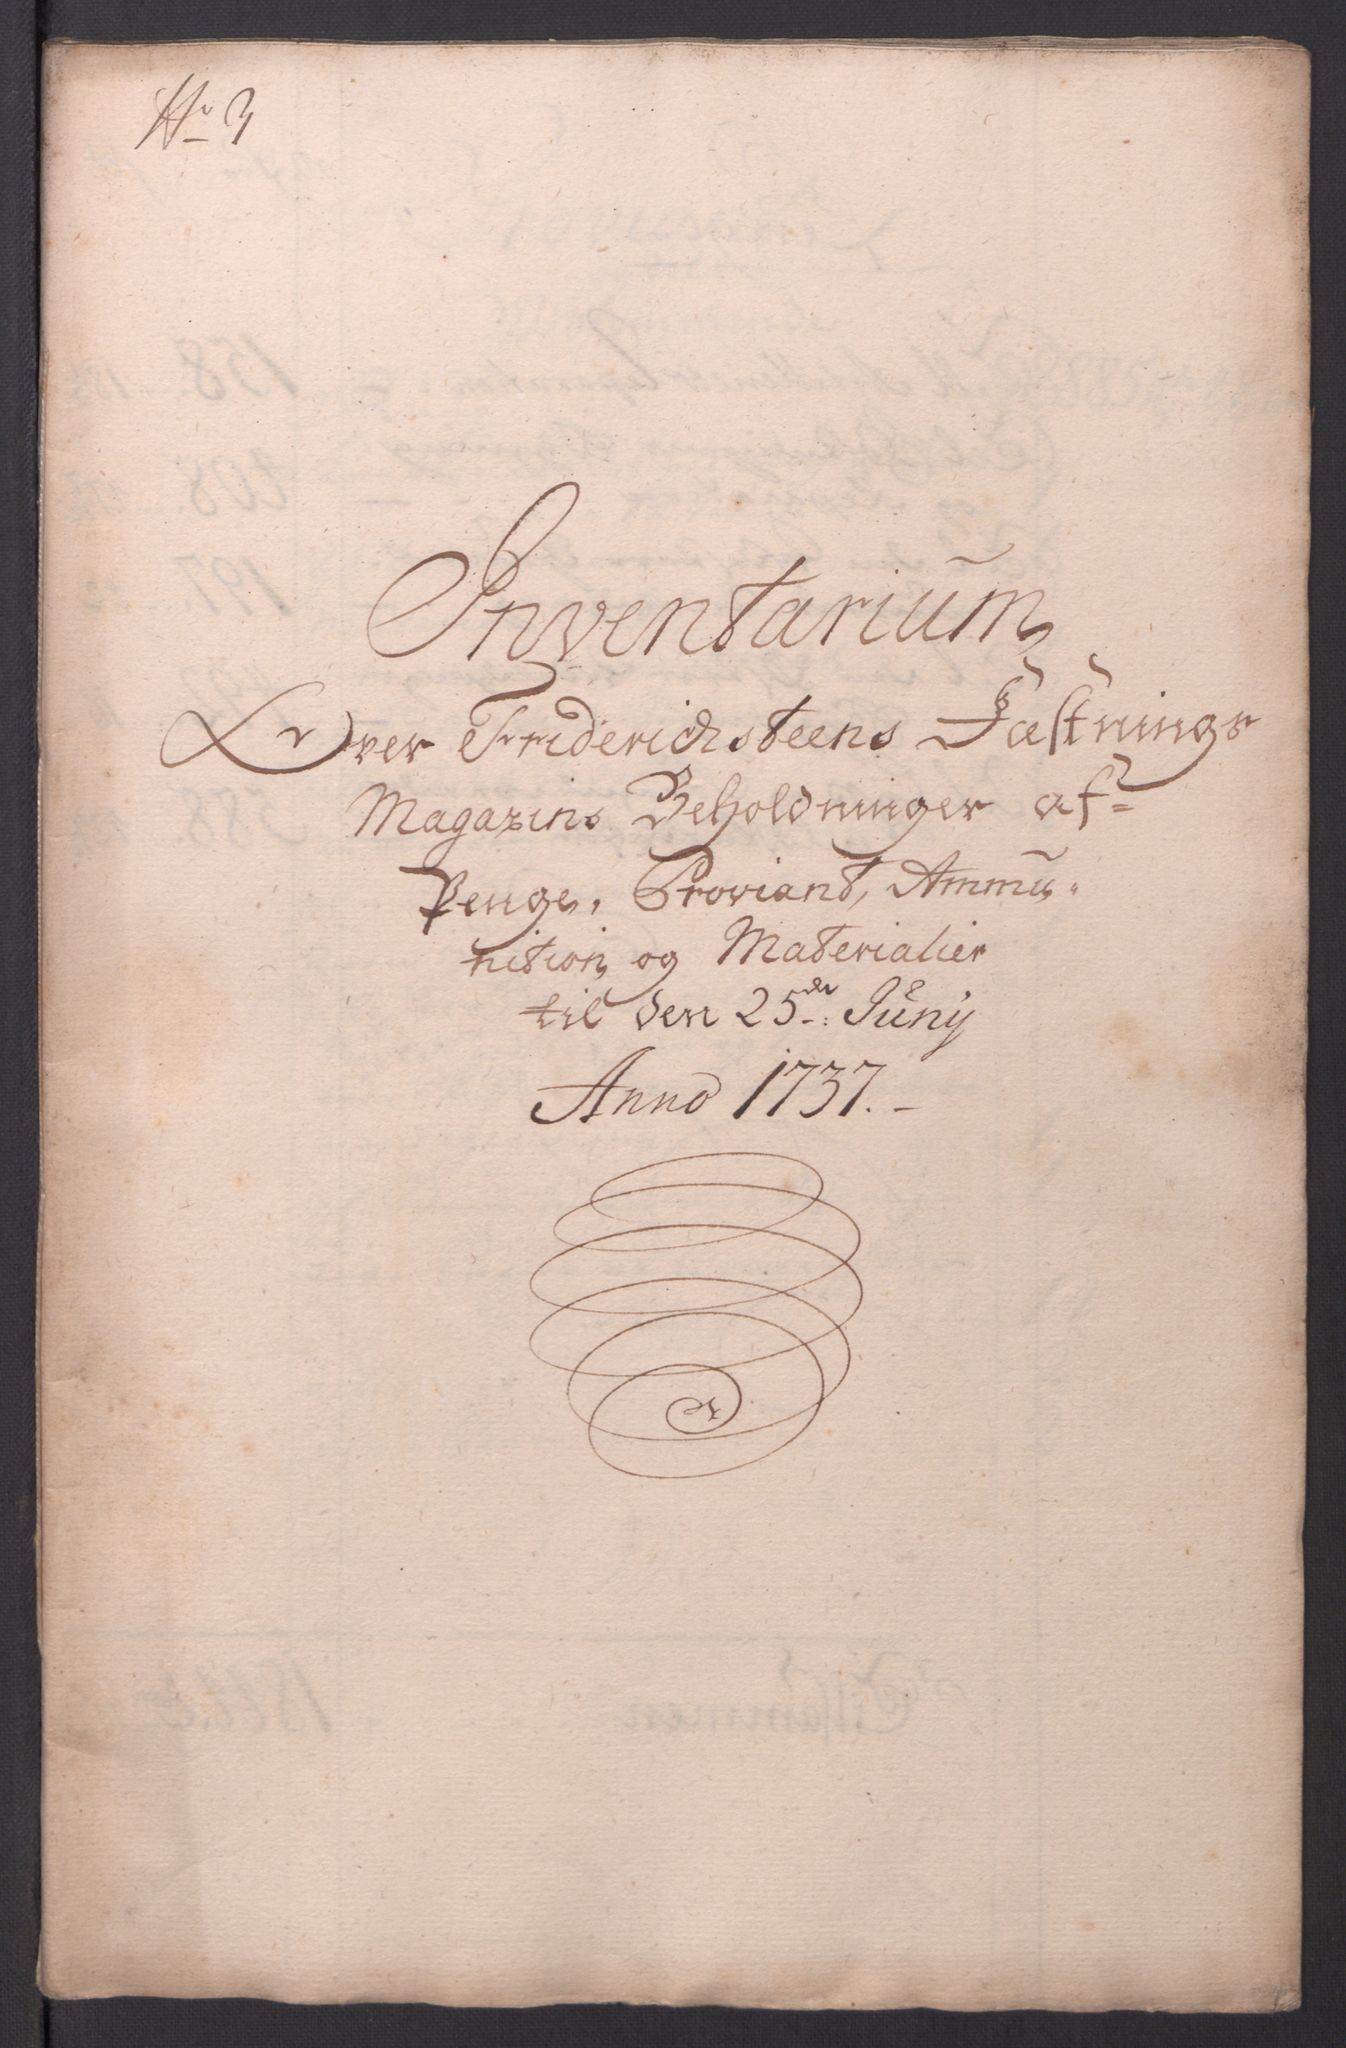 No 3
Inventarium
Over Friderichsteens Fæstnings
Magazins Beholdninger af
Penge, Proviant, Ammu-
nition og Materialier
til den 25de: Juny
Anno 1737. -